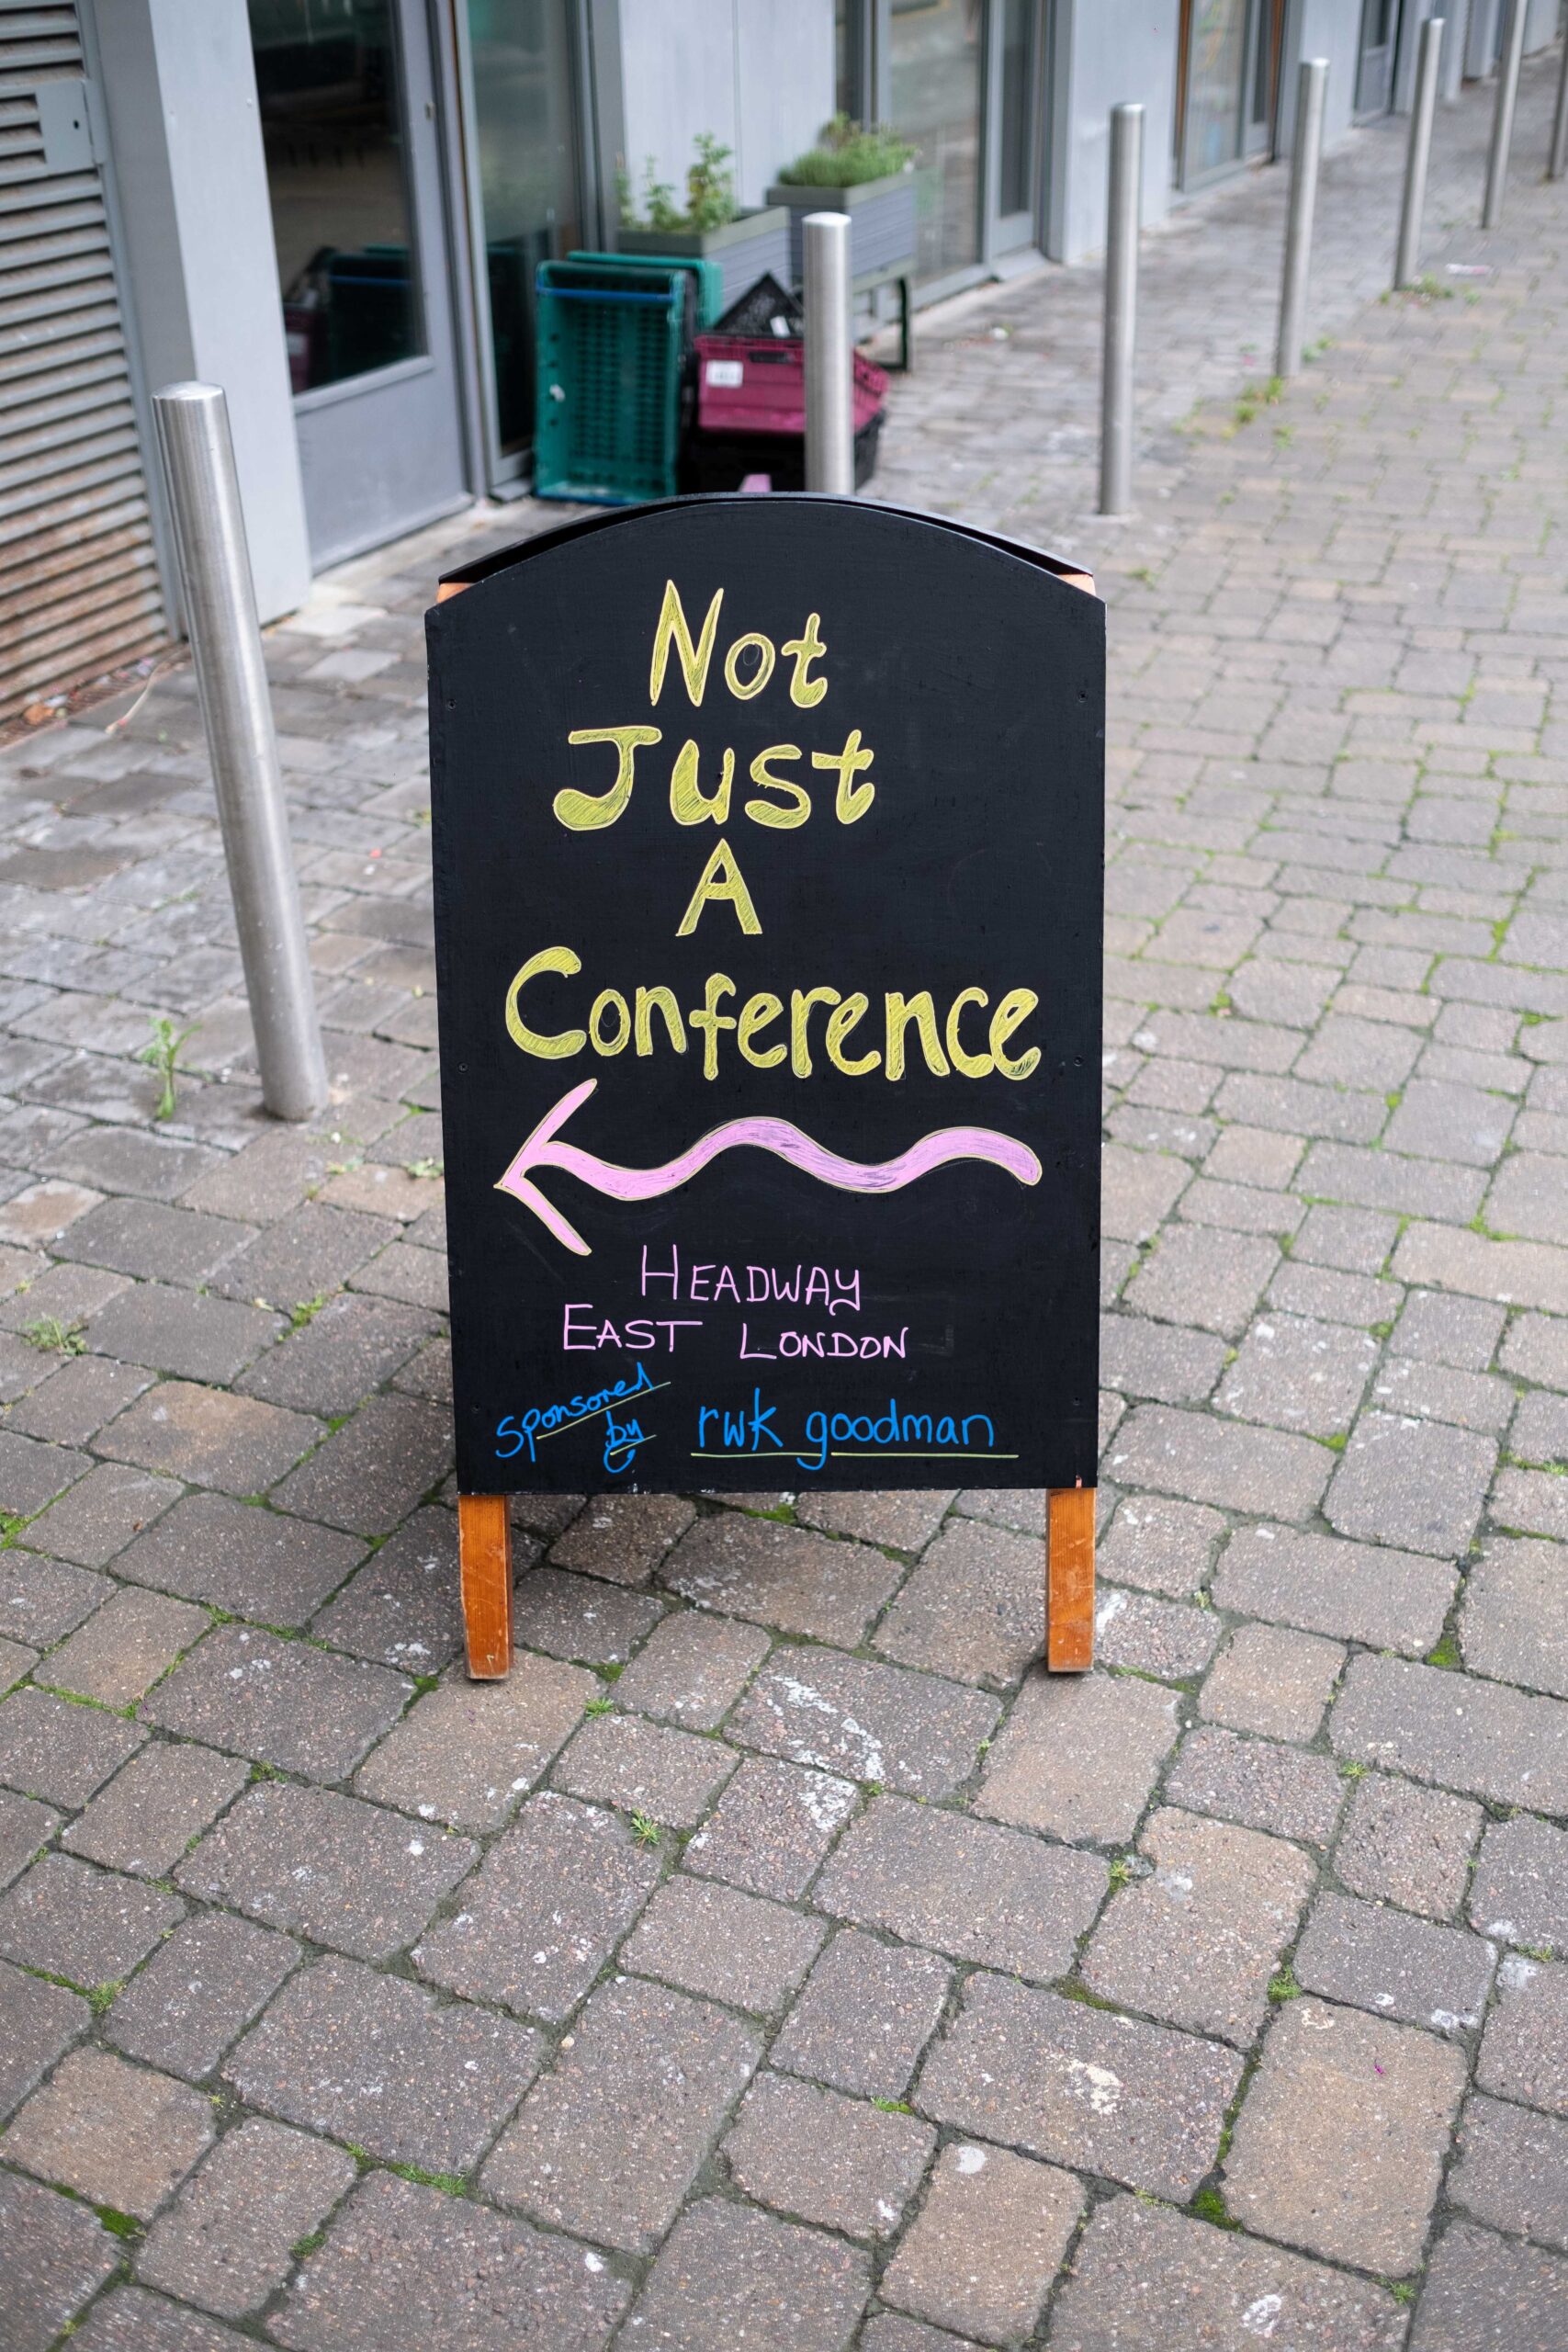 Not
Just
A
Conference
HEADWAY
EAST LONDON
Sponsored
by rwk goodman